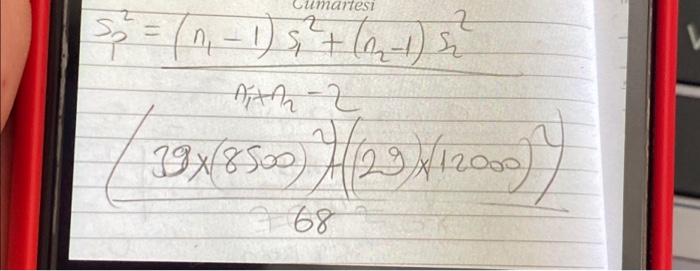 Cumartesi
Sp² = (n₁ - 1) s₁² + (n₂ - 1) s₂²
n₁ + n₂ - 2
(39x(8500)²)+((29)x(12000)²)
68